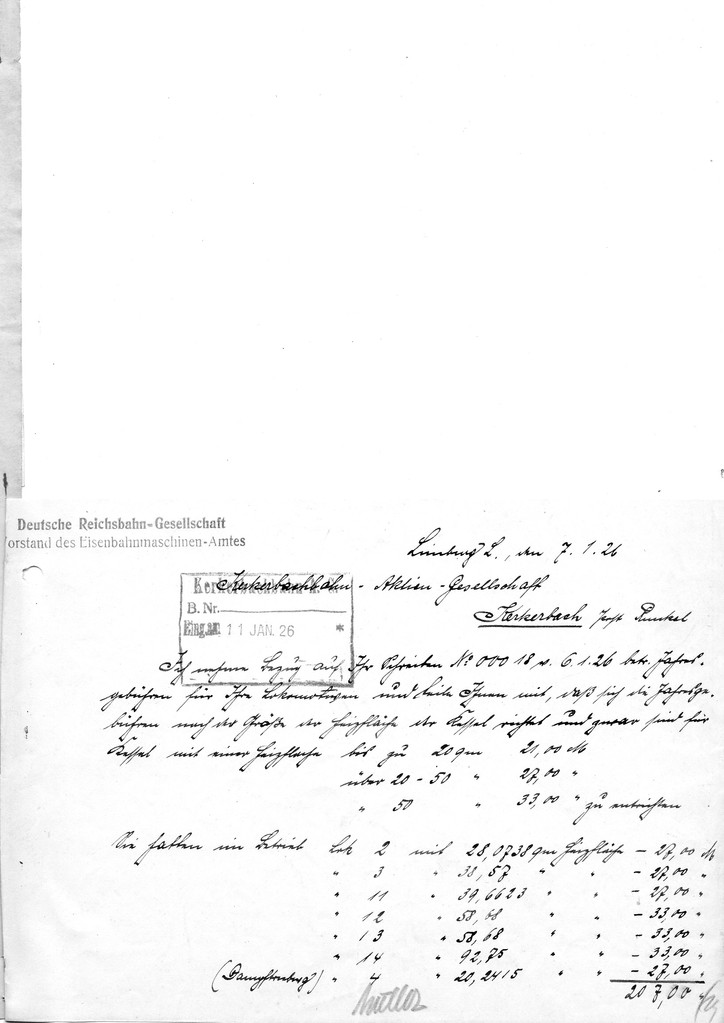 Deutsche Reichsbahn-Gesellschaft
Vorstand des Eisenbahnmaschinen-Amtes
Limburg L., den 7.1.26
Kerkerbachbahn - Aktien-Gesellschaft
B. Nr.
Eing. am 11 JAN. 26 *
Kerkerbach Post Runkel
Ich nehme Bezug auf Ihr Schreiben No 00018 v. 6.1.26 betr. Jahres-
gebühren für Ihre Lokomotiven und teile Ihnen mit, daß sich die Jahresge-
bühren nach der Größe der Heizfläche der Kessel richtet und zwar sind für
Kessel mit einer Heizfläche bis zu 20 qm 21,00 M
über 20 - 50 " 27,00 "
" 50 " 33,00 " zu entrichten
Sie hatten im Betrieb Lok 2 mit 28,0738 qm Heizfläche - 27,00 M
" 3 " 38,57 " " - 27,00 "
" 11 " 39,6623 " " - 27,00 "
" 12 " 58,68 " " - 33,00 "
" 13 " 58,68 " " - 33,00 "
" 14 " 92,75 " " - 33,00 "
" 4 " 20,2415 " " - 27,00 "
207,00 "